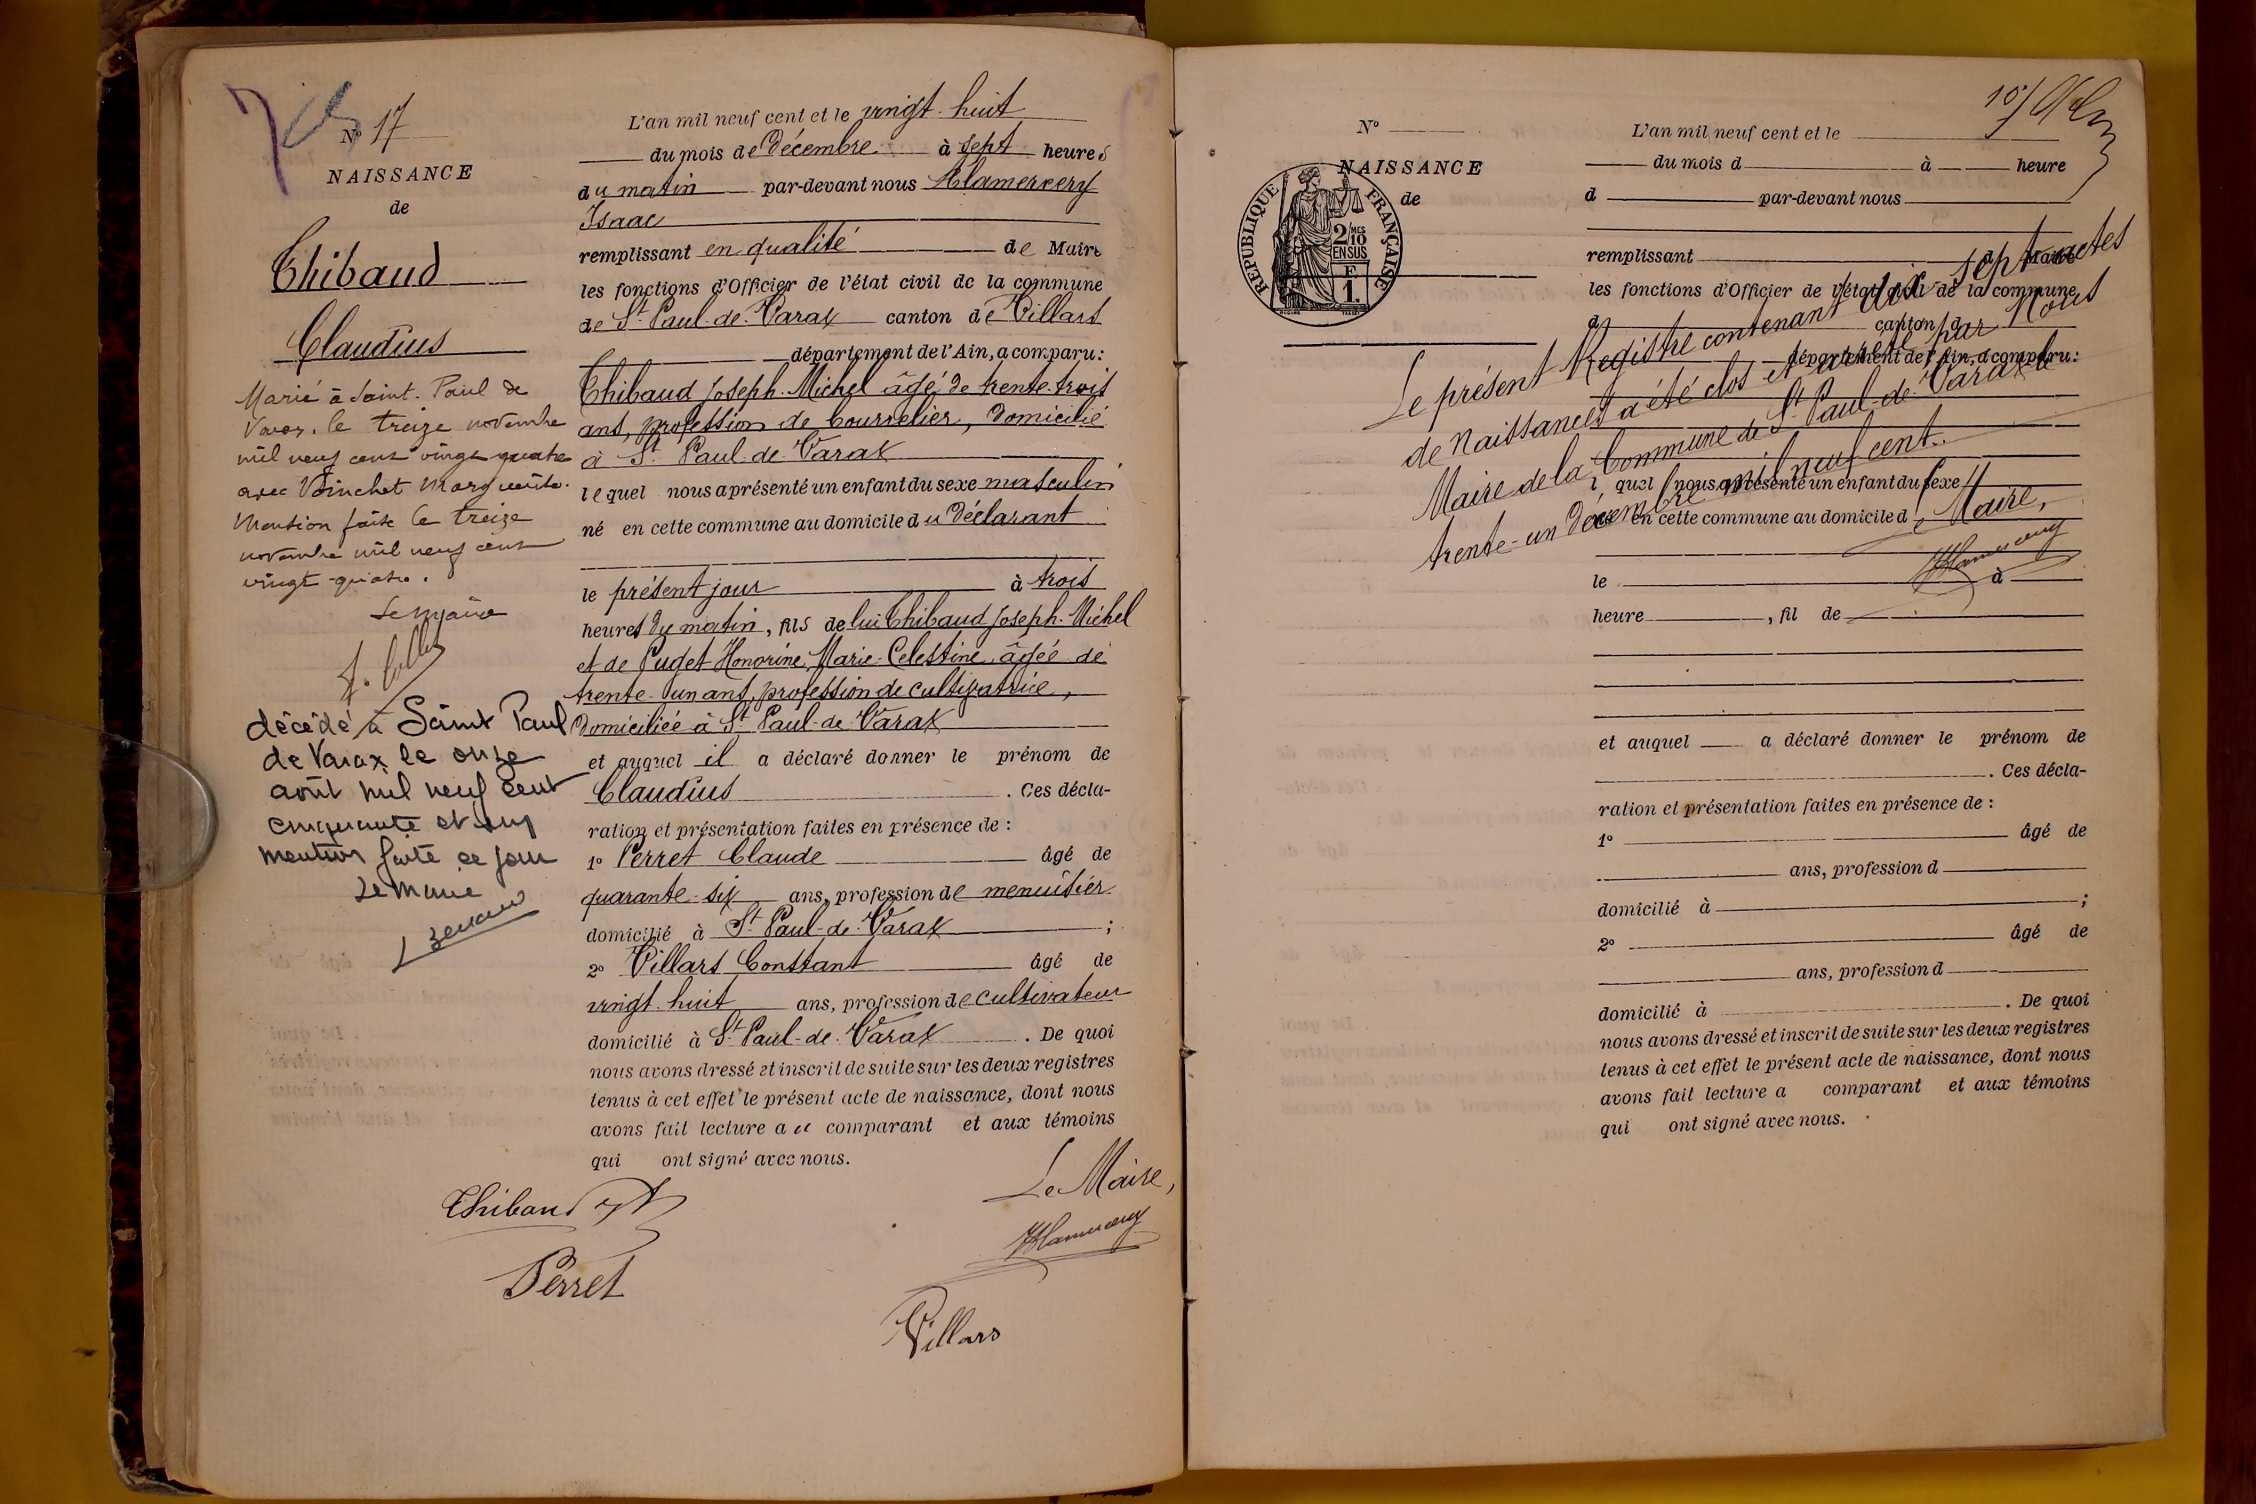 N° 17
NAISSANCE
de
Thibaud
Claudius
Marié à Saint-Paul de
Varax. le treize novembre
mil neuf cent vingt quatre
avec Voinchet Marguerite.
Mention faite le treize
novembre mil neuf cent
vingt-quatre.
Le Maire
décédé à Saint Paul
de Varax le onze
août mil neuf cent
cinquante et un
mention faite ce jour
Le Maire
L'an mil neuf cent et le vingt-huit
du mois de Décembre à sept heures
du matin par-devant nous Clamerery
Isaac
remplissant en qualité de Maire
les fonctions d'Officier de l'état civil de la commune
de St Paul-de-Varax canton de Villars
département de l'Ain, a comparu:
Thibaud Joseph-Michel âgé de trente-trois
ans, profession de bourrelier, domicilié
à St Paul-de-Varax
lequel nous a présenté un enfant du sexe masculin
né en cette commune au domicile du Déclarant
le présent jour à trois
heures du matin, fils de lui Thibaud Joseph-Michel
et de Puget Honorine Marie-Celestine âgée de
trente-un ans, profession de cultivatrice,
domiciliée à St Paul-de-Varax
et auquel il a déclaré donner le prénom de
Claudius. Ces décla-
ration et présentation faites en présence de :
1° Perret Claude âgé de
quarante-six ans, profession de menuisier
domicilié à St Paul-de-Varax ;
2° Villars Constant âgé de
vingt-huit ans, profession de cultivateur
domicilié à St Paul-de-Varax. De quoi
nous avons dressé et inscrit de suite sur les deux registres
tenus à cet effet le présent acte de naissance, dont nous
avons fait lecture au comparant et aux témoins
qui ont signé avec nous.
Thibaud
Le Maire,
Perret
Villars
N°
NAISSANCE
de
REPUBLIQUE FRANÇAISE
2/10 MES
EN SUS
F
1.
L'an mil neuf cent et le
du mois d à heure
d par-devant nous
remplissant d Maire
les fonctions d'Officier de l'état civil de la commune
d canton d
département de l'Ain, a comparu:
l quel nous a présenté un enfant du sexe
né en cette commune au domicile d
le à
heure , fil de
et auquel a déclaré donner le prénom de
. Ces décla-
ration et présentation faites en présence de :
1° âgé de
ans, profession d
domicilié à ;
2° âgé de
ans, profession d
domicilié à . De quoi
nous avons dressé et inscrit de suite sur les deux registres
tenus à cet effet le présent acte de naissance, dont nous
avons fait lecture a comparant et aux témoins
qui ont signé avec nous.
Le présent Registre contenant dix-sept actes
de Naissances a été clos et arrêté par Nous
Maire de la Commune de St Paul-de-Varax le
trente-un Décembre mil neuf cent.
Le Maire,